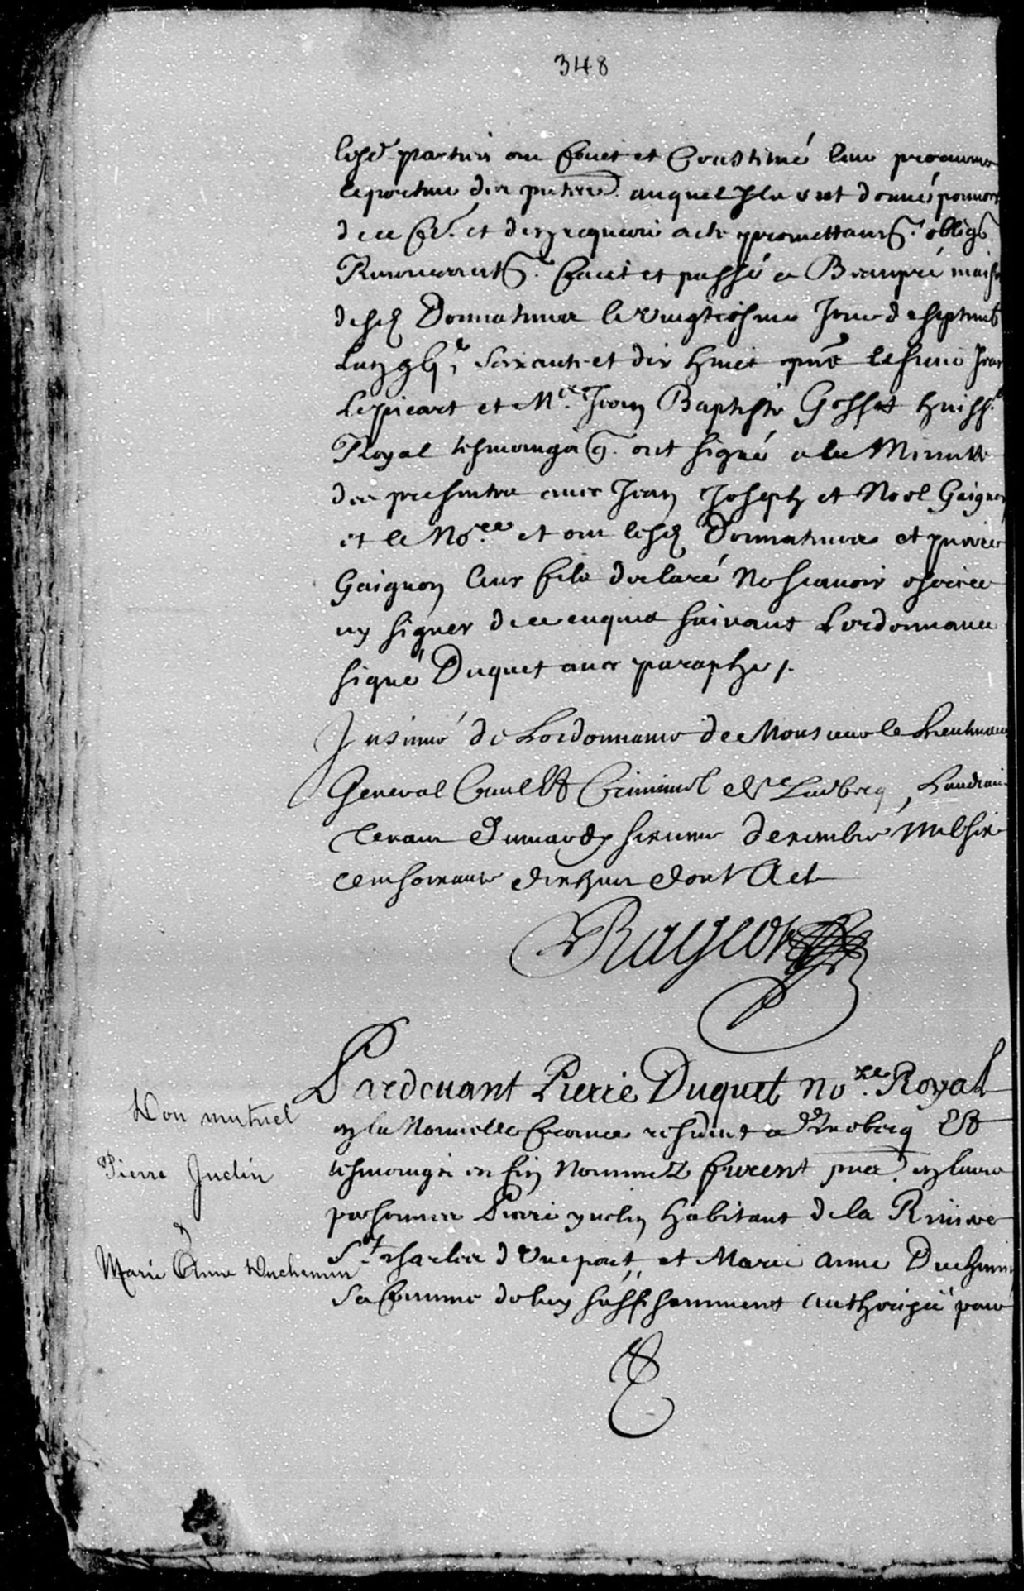 348
lesd. parties ont fait et Constitué leur procureur
le porteur des pntes auquel Ils ont donné pouvoir
de ce fe. et den requerir acte promettans. obligs
Renonceants. fait et passé a Beaupré maison
desd Donnateurs le vingtiesme Jour de septemb
soixante et dix huict Jean
Lepicart et Me. Jean Baptiste Gosset huiss.
Royal tesmoings q. ont signé a la Minutte
des presentes avec Jean Joseph et Noel Gaignon
et le Nore. et ont lesd Donnateurs et pierre
Gaignon leur fils declaré Ne scavoir escrire
ny signer de ce enquis suivant Lordonnance
signé Duquet avec paraphe /.
Insinué de Lordonnance de Monsieur le Lieutenant
General Civil & Criminel de Quebecq, Laudiance
Tenant Du mardy sixieme decembre Mil six
cent soixante dix huit dont Acte
Rageot
Pardevant Pierre Duquet nore. Royal
en la Nouvelle france residant a Quebecq &
tesmoings en fin Nommez furent pnts. en leurs
personnes Pierre Juclin habitant de la Riviere
St. charles d'Une part, et Marie anne Duchemin
sa femme de luy suffisamment authorisée pour
Don mutuel
Pierre Juclin
&
Marie Anne Duchemin